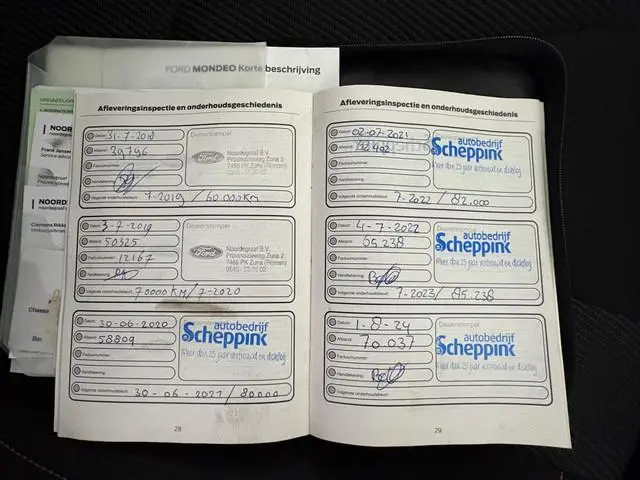 FORD MONDEO Korte beschrijving
Afleveringsinspectie en onderhoudsgeschiedenis
Datum: 31-7-2018
Dealerstempel
Afstand: 39796
Factuurnummer:
Ford
Noordegraaf B.V.
Provincialeweg Zuna 2
7466 PK Zuna (Rijssen)
Handtekening:
Volgende onderhoudsbeurt: 7-2019 / 60.000KM
Datum: 3-7-2019
Dealerstempel
Afstand: 50325
Factuurnummer: 12167
Ford
Noordegraaf B.V.
Provincialeweg Zuna 2
7466 PK Zuna (Rijssen)
Handtekening:
Volgende onderhoudsbeurt: 70000KM/7-2020
Datum: 30-06-2020
Afstand: 58809
autobedrijf
Scheppink
Meer dan 25 jaar vertrouwd en dichtbij
Factuurnummer:
Handtekening:
Volgende onderhoudsbeurt: 30-06-2021 / 80000
28
Afleveringsinspectie en onderhoudsgeschiedenis
Datum: 02-07-2021
Afstand:
autobedrijf
Scheppink
Meer dan 25 jaar vertrouwd en dichtbij
Factuurnummer:
Handtekening:
Volgende onderhoudsbeurt: 7-2022 / 82.000
Datum: 4-7-2022
Dealerstempel
Afstand: 65.238
autobedrijf
Scheppink
Meer dan 25 jaar vertrouwd en dichtbij
Factuurnummer:
Handtekening:
Volgende onderhoudsbeurt: 7-2023/ 85.238
Datum: 1-8-24
Dealerstempel
Afstand: 70.037
autobedrijf
Scheppink
Meer dan 25 jaar vertrouwd en dichtbij
Factuurnummer:
Handtekening:
Volgende onderhoudsbeurt:
29
NOOR
Frank Jansen
Service advis
NOORD
Chasse